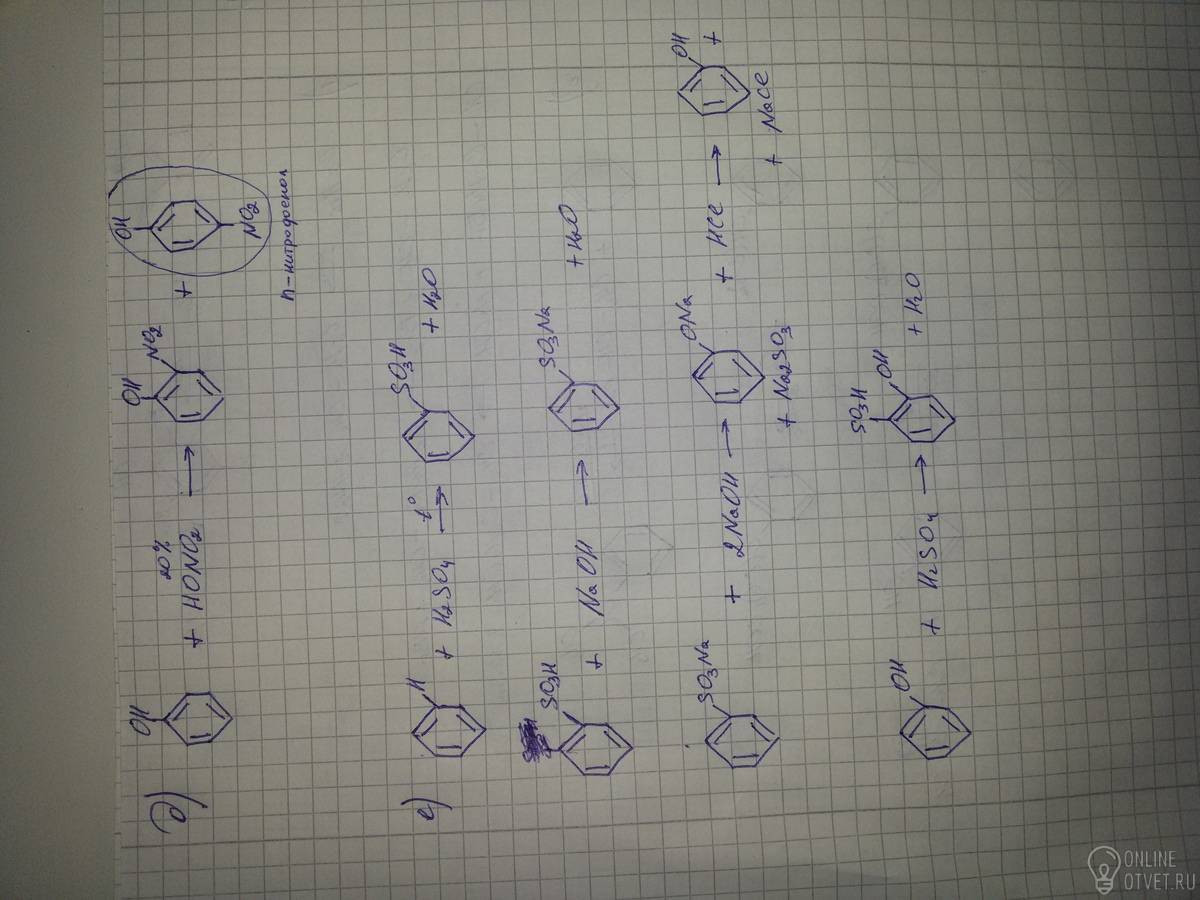 д) OH + 20% HONO2 → OH NO2 + OH NO2
п-нитрофенол
е) H + H2SO4 t° → SO3H + H2O
SO3H + NaOH → SO3Na + H2O
SO3Na + 2NaOH → ONa + Na2SO3 + HCl → OH + + NaCl
OH + H2SO4 → SO3H OH + H2O
ONLINE
OTVET.RU